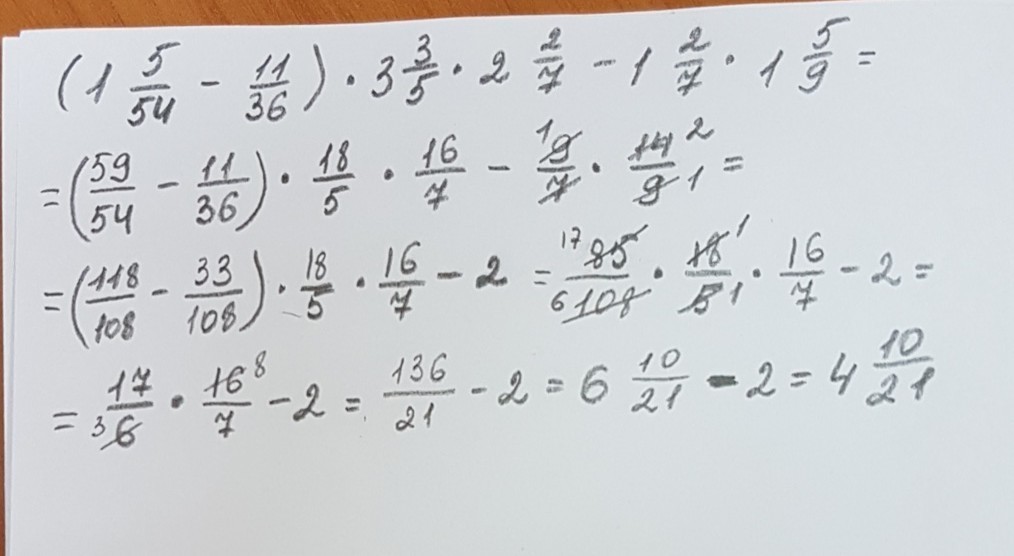 (1 5/54 - 11/36) · 3 3/5 · 2 2/7 - 1 2/7 · 1 5/9 =
= (59/54 - 11/36) · 18/5 · 16/7 - 1 9/7 · 14/9 2 1 =
= (118/108 - 33/108) · 18/5 · 16/7 - 2 = 17 85/6 108 · 18/5 1 1 · 16/7 - 2 =
= 17/3 6 · 16/7 8 - 2 = 136/21 - 2 = 6 10/21 - 2 = 4 10/21